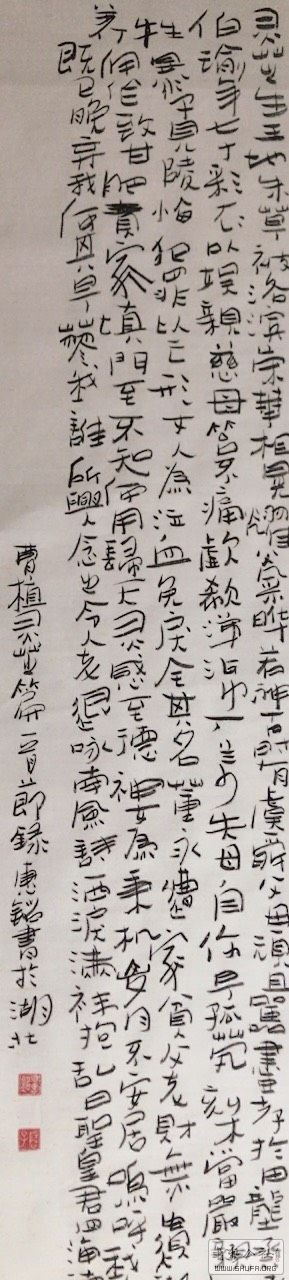 灵芝生王地朱草被洛滨荣华相晃耀光采晔若神古时有虞舜父母顽且嚚尽孝于田垄
伯瑜年七十彩衣以娱亲慈母笞不痛歔欷涕沾巾丁兰少失母自伤早孤茕刻木当严
牲朝暮见陵悔犯罪以亡形丈人为泣血免戾全其名董永遭家贫父老财无遗
养佣作致甘肥责家填门至不知何用归天灵感至德神女为秉机岁月不安居呜呼我
既已晚弃我何其早蓼莪谁所兴念之令人老退咏南风诗洒泪满袆抱乱曰圣皇君四海
曹植灵芝篇一首节录 书于湖北
WWW.SHUFA.ORG